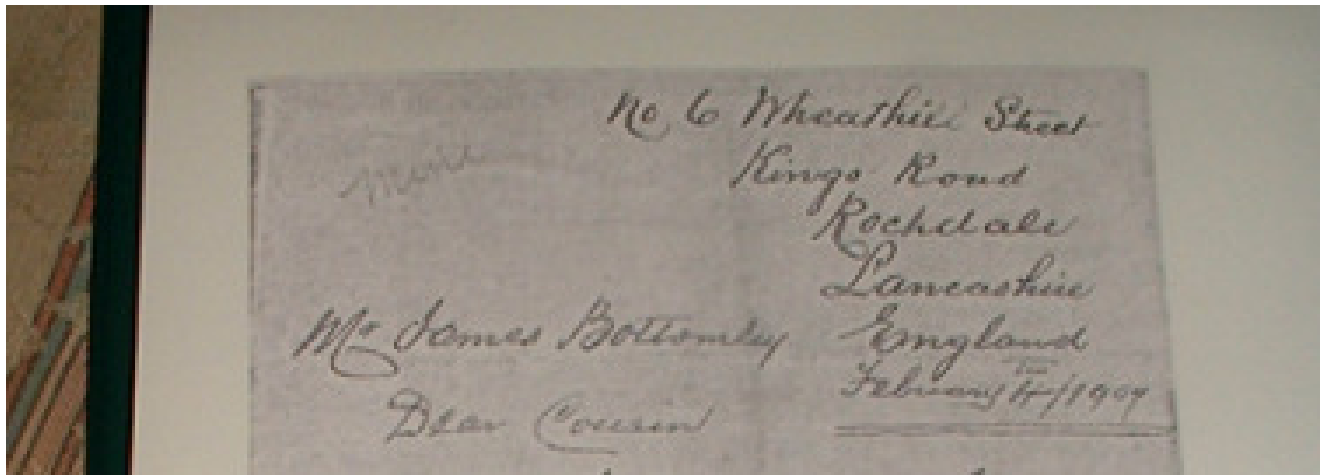 No 6 Wheathill Street
Kings Road
Rochdale
Lancashire
England
February 4th/1907
Mr James Bottomley
Dear Cousin